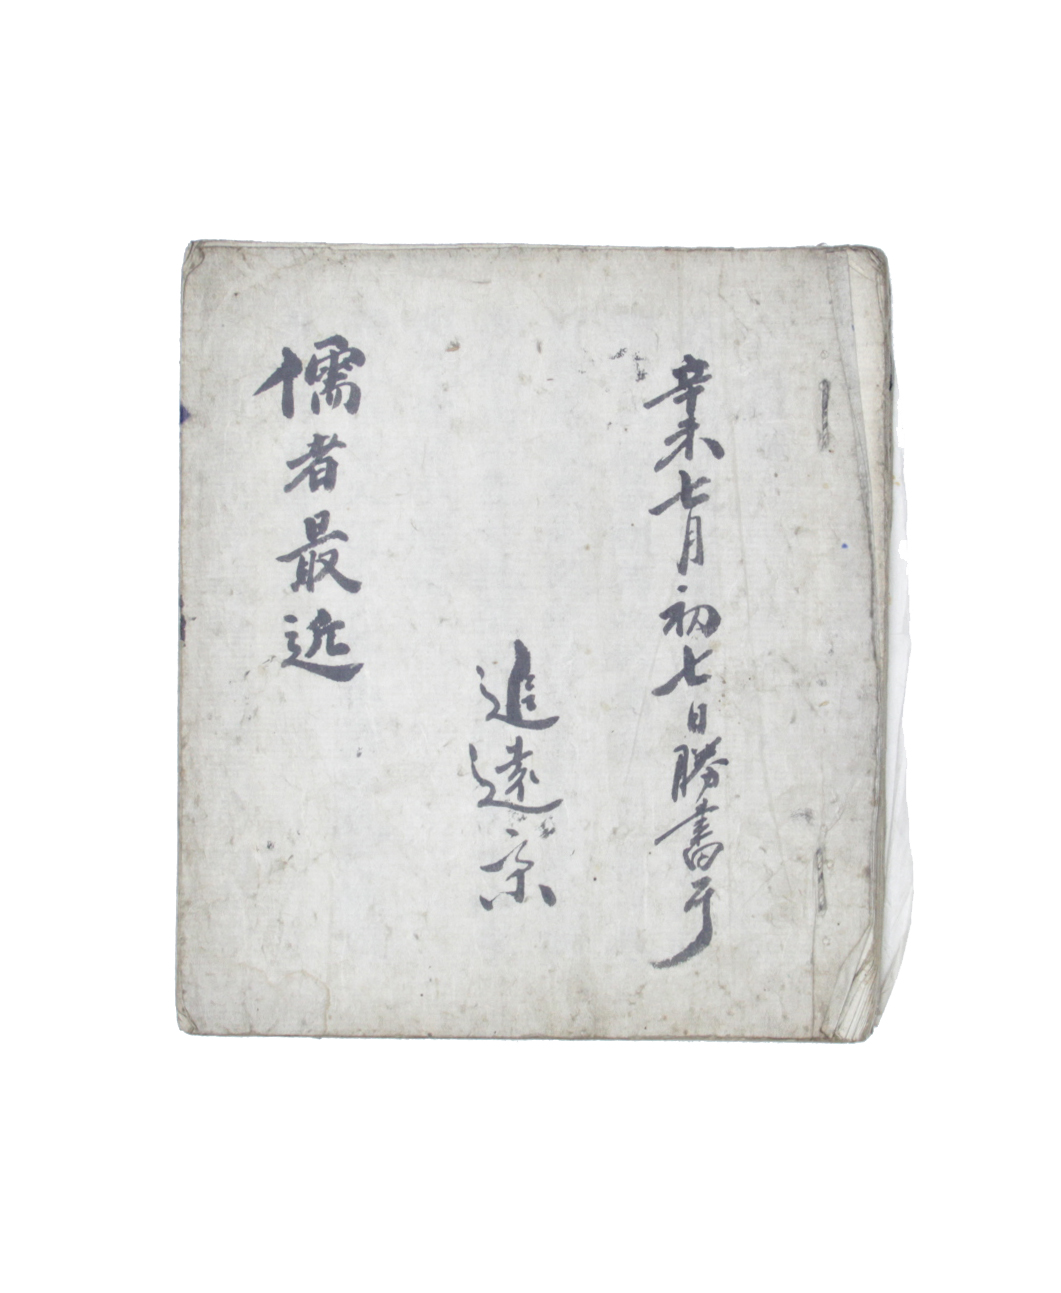 辛未七月初七日勝書于
追遠京
儒者最近